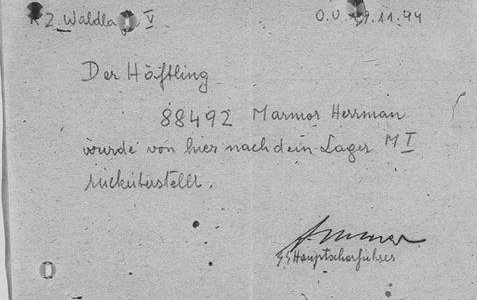 K Z. Waldla V
O.U 9.11.44
Der Häftling
88492 Marmor Herrman
wurde von hier nach dem Lager M I
rücküberstellt.
SS Hauptscharführer